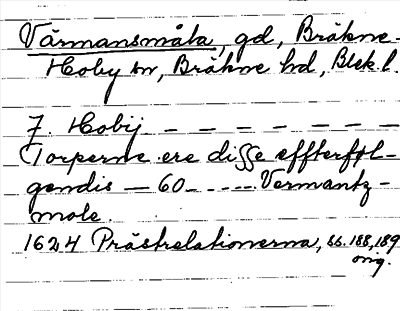 Värmansmåla, gd, Bräkne-
Hoby sn, Bräkne hd, Blek. l.
7. Hobij – – – – – – –
Torperne ere disse effterføl-
gendis – 60 – – – – Vermantz-
mole.
1624 Prästrelationerna, ss. 188, 189
orig.